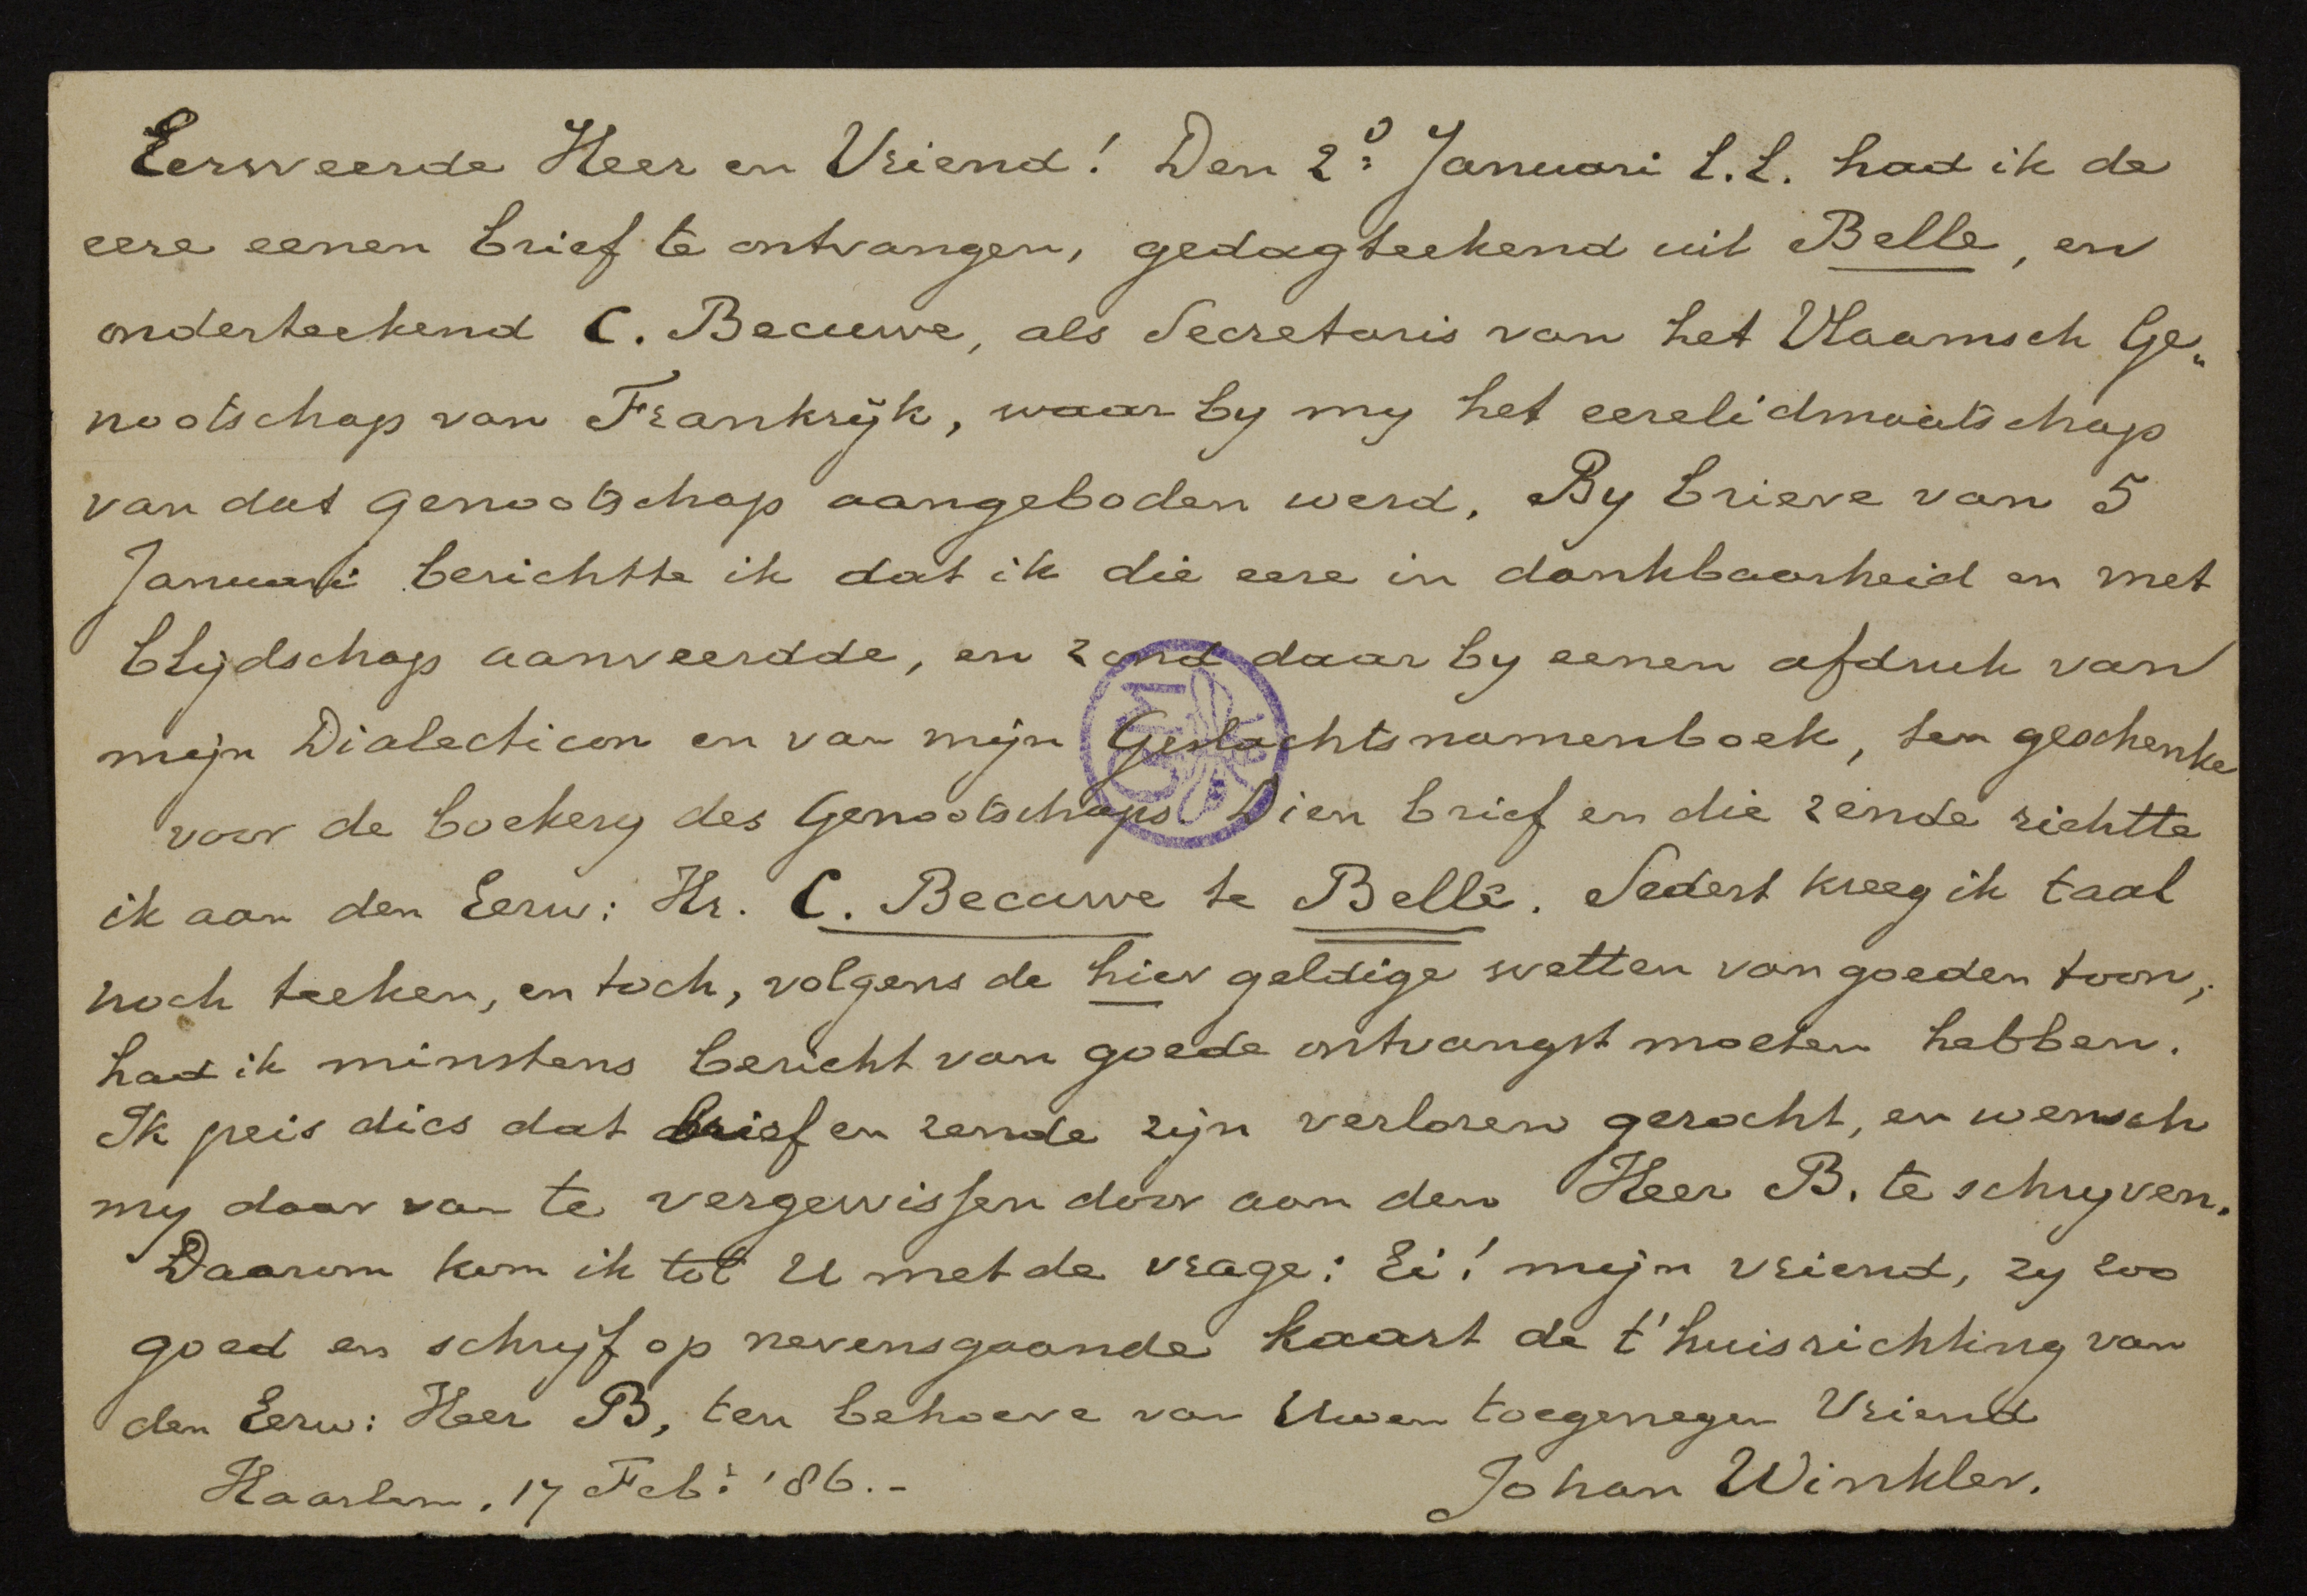 Eerweerde Heer en Vriend! Den 2º Januari l.l. had ik de
eere eenen brief te ontvangen, gedagteekend uit Belle, en
onderteekend C. Becuwe, als Secretaris van het Vlaamsch Ge„
nootschap van Frankrijk, waar by my het eerelidmaatschap
van dat genootschap aangeboden werd. By brieve van 5
Januari berichtte ik dat ik die eere in dankbaarheid en met
blijdschap aanveerdde, en zond daar by eenen afdruk van
mijn Dialecticon en van mijn Geslachtsnamenboek, ten geschenke
voor de boekery des Genootschaps. Dien brief en die zende richtte
ik aan den Eerw: Hr. C. Becuwe te Belle. Sedert kreeg ik taal
noch teeken, en toch, volgens de hier geldige wetten van goeden toon,
had ik minstens bericht van goede ontvangst moeten hebben.
Ik peis dies dat brief en zende zijn verloren gerocht, en wensch
my daar van te vergewissen door aan den Heer B. te schryven.
Daarom kom ik tot U met de vrage: Ei! mijn vriend, zy zoo
goed en schrijf op nevensgaande kaart de t'huisrichting van
den Eerw: Heer B, ten behoeve van Uwen toegenegen Vriend
Haarlem, 17 Febr: '86.-
Johan Winkler.